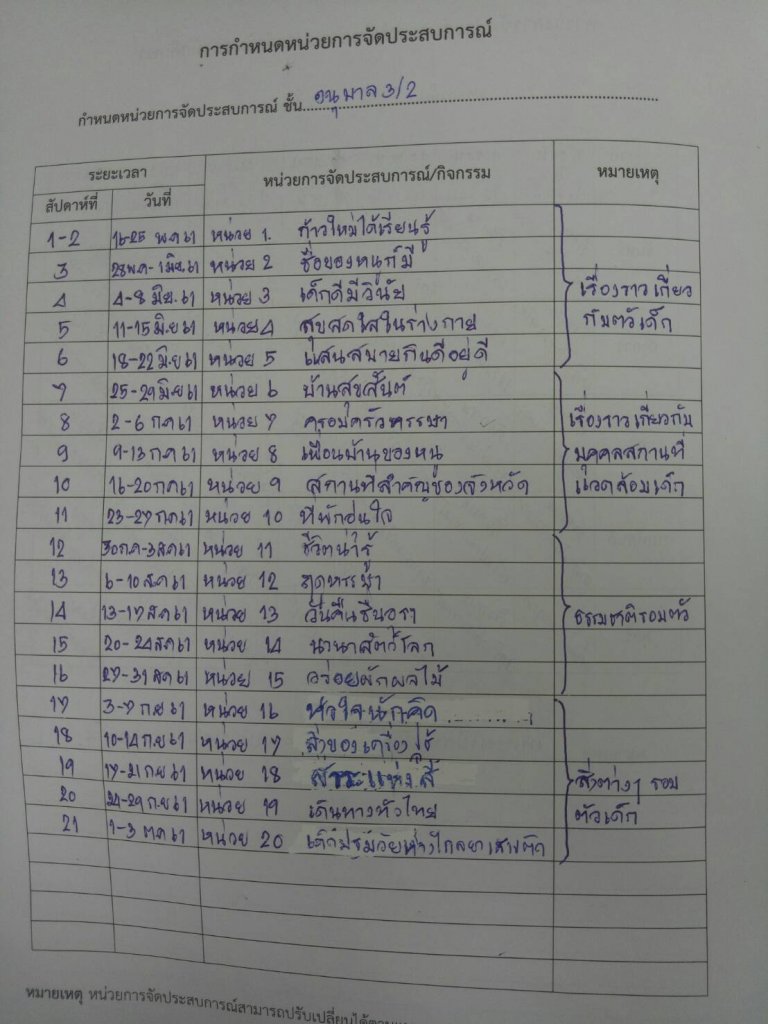 การกำหนดหน่วยการจัดประสบการณ์
กำหนดหน่วยการจัดประสบการณ์ ชั้น อนุบาล 3/2
ระยะเวลา หน่วยการจัดประสบการณ์/กิจกรรม หมายเหตุ
สัปดาห์ที่ วันที่
1-2 16-25 พ.ค 61 หน่วย 1. ก้าวใหม่ได้เรียนรู้
3 28 พ.ค - 1 มิ.ย 61 หน่วย 2 ชื่อของหนูก็มี
4 4-8 มิ.ย. 61 หน่วย 3 เด็กดีมีวินัย เรื่องราวเกี่ยว
5 11-15 มิ.ย 61 หน่วย 4 สุขสดใสในร่างกาย กับตัวเด็ก
6 18-22 มิ.ย 61 หน่วย 5 แสนสบายกินดีอยู่ดี
7 25-29 มิ.ย 61 หน่วย 6 บ้านสุขสันต์
8 2-6 ก.ค 61 หน่วย 7 ครอบครัวหรรษา เรื่องราวเกี่ยวกับ
9 9-13 ก.ค 61 หน่วย 8 เพื่อนบ้านของหนู บุคคลสถานที่
10 16-20 ก.ค 61 หน่วย 9 สถานที่สำคัญของจังหวัด แวดล้อมเด็ก
11 23-27 ก.ค 61 หน่วย 10 ที่พักอุ่นใจ
12 30 ก.ค - 3 ส.ค 61 หน่วย 11 ชีวิตน่ารู้
13 6-10 ส.ค 61 หน่วย 12 ฤดูหรรษา
14 13-17 ส.ค 61 หน่วย 13 วันคืนชื่นอุรา ธรรมชาติรอบตัว
15 20-24 ส.ค 61 หน่วย 14 นานาสัตว์โลก
16 27-31 ส.ค 61 หน่วย 15 อร่อยผักผลไม้
17 3-7 ก.ย 61 หน่วย 16 หัวใจนักคิด
18 10-14 ก.ย 61 หน่วย 17 สิ่งของเครื่องใช้
19 17-21 ก.ย 61 หน่วย 18 สาระแห่งสี สิ่งต่างๆ รอบ
20 24-29 ก.ย 61 หน่วย 19 เดินทางทั่วไทย ตัวเด็ก
21 1-3 ต.ค 61 หน่วย 20 เด็กปฐมวัยห่างไกลยาเสพติด
หมายเหตุ หน่วยการจัดประสบการณ์สามารถปรับเปลี่ยนได้ตาม